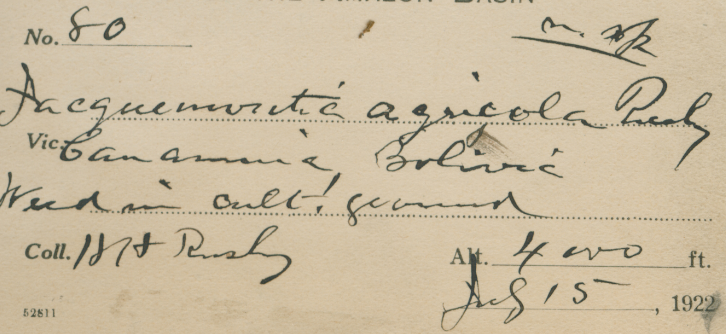 AMAZON BASIN
No. 80
n. sp
Jacquemontia agricola Rusby
Vic. Canamina Bolivia
Weed in cult! ground
Coll. HH Rusby Alt. 4000 ft.
July 15, 1922
52811